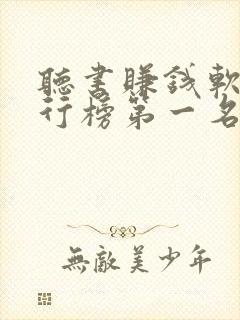 聽書賺錢軟
行榜第一名
無敵美少年